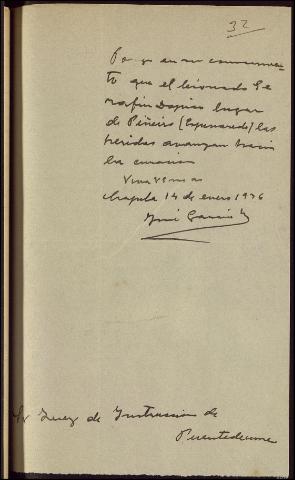 32
Pongo en su conocimien-
to que el lesionado Se
rafin Dopico lugar
de Piñeiro (Espenuredo) las
heridas avanzan hacia
la curacion
14 de enero 1936
José
Sr Juez de Instruccion de
Puentedeume